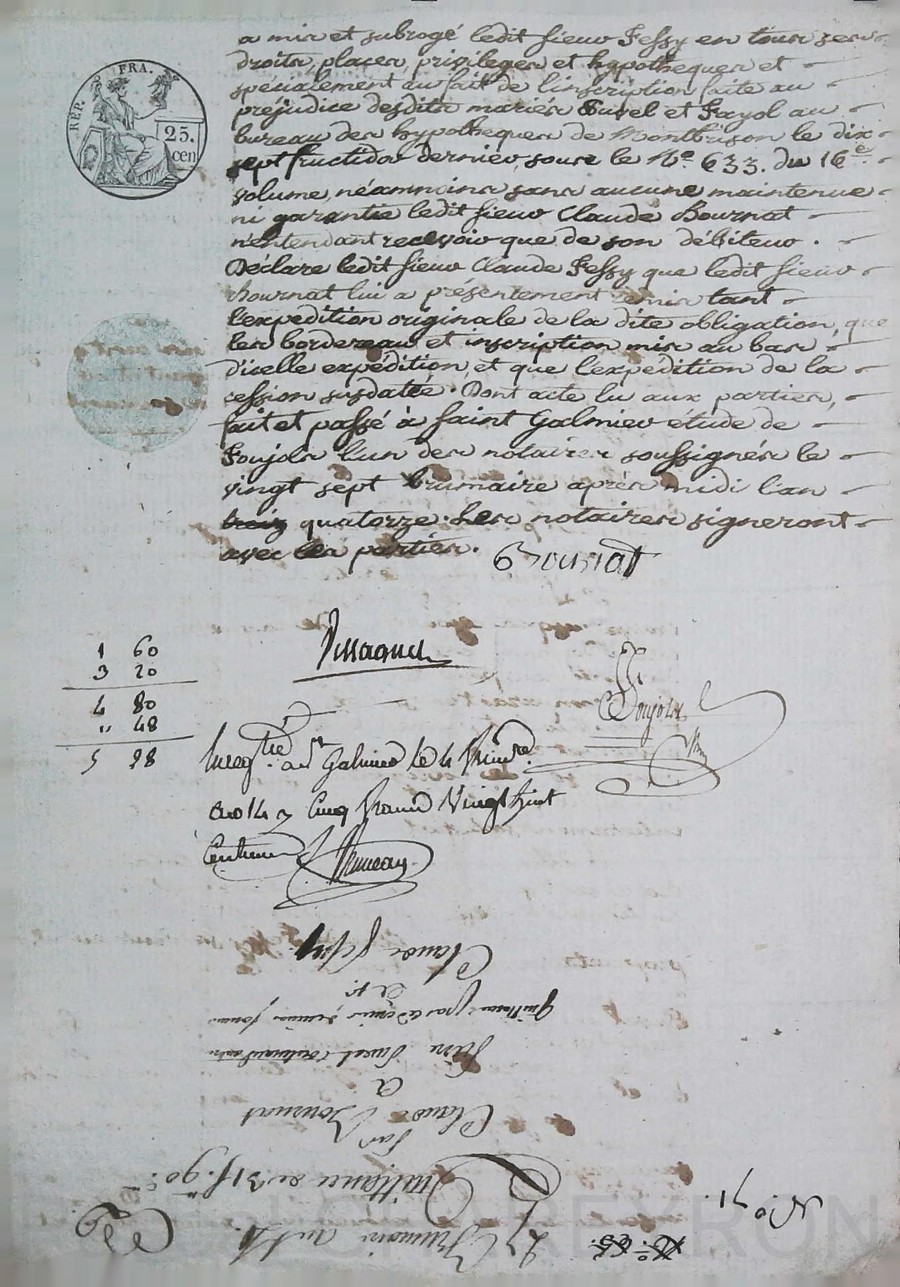 REP. FRA.
25.
cen
a mis et subrogé ledit sieur Fessy en tous ses
droits, places, privileges et hypotheques et
spécialement au fait de l'inscription faite au
préjudice desdits mariés Suvel et Fayol au
bureau des hypotheques de Montbrison le dix
sept fructidor dernier sous le N.o 633. du 16e
volume, néammoins sans aucune maintenue
ni garantie ledit sieur Claude Bournat
n'entendant recevoir que de son débiteur.
Déclare ledit sieur Claude Fessy que ledit sieur
Bournat lui a présentement remis tant
l'expedition originale de la dite obligation, que
les bordereau et inscription mis au bas
d'icelle expédition, et que l'expedition de la
cession susdatée. Dont acte lu aux parties,
fait et passé à Saint Galmier étude de
Poujols l'un des notaires soussignés le
vingt sept brumaire après midi l'an
quatorze. Les notaires signeront
avec les parties. Bournat
1 60
3 20
4 80
" 48
5 28
Poujols
Enregtré a St Galmier le 4 frimre
an 14 cinq francs vingt huit
centimes
Claude Fessy
Claude Bournat
A
Par
Quittance de 31 f. 90
27 Brumaire an 14
N.o 71.